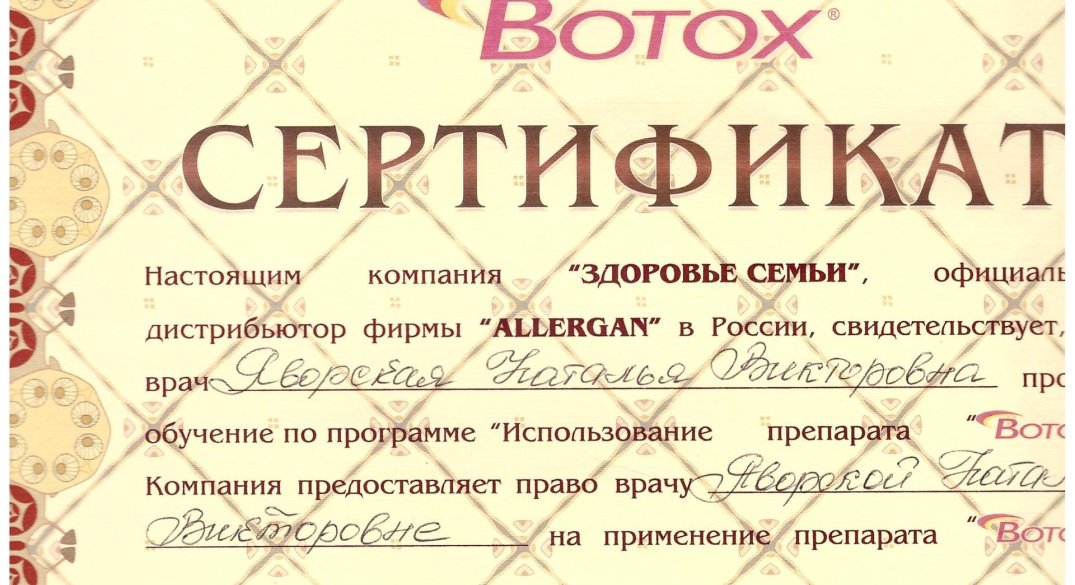 BOTOX®
СЕРТИФИКАТ
Настоящим компания “ЗДОРОВЬЕ СЕМЬИ”, официаль
дистрибьютор фирмы “ALLERGAN” в России, свидетельствует,
врач Яворская Наталья Викторовна про
обучение по программе “Использование препарата “BOTO
Компания предоставляет право врачу Яворской Натал
Викторовне на применение препарата “BOTO